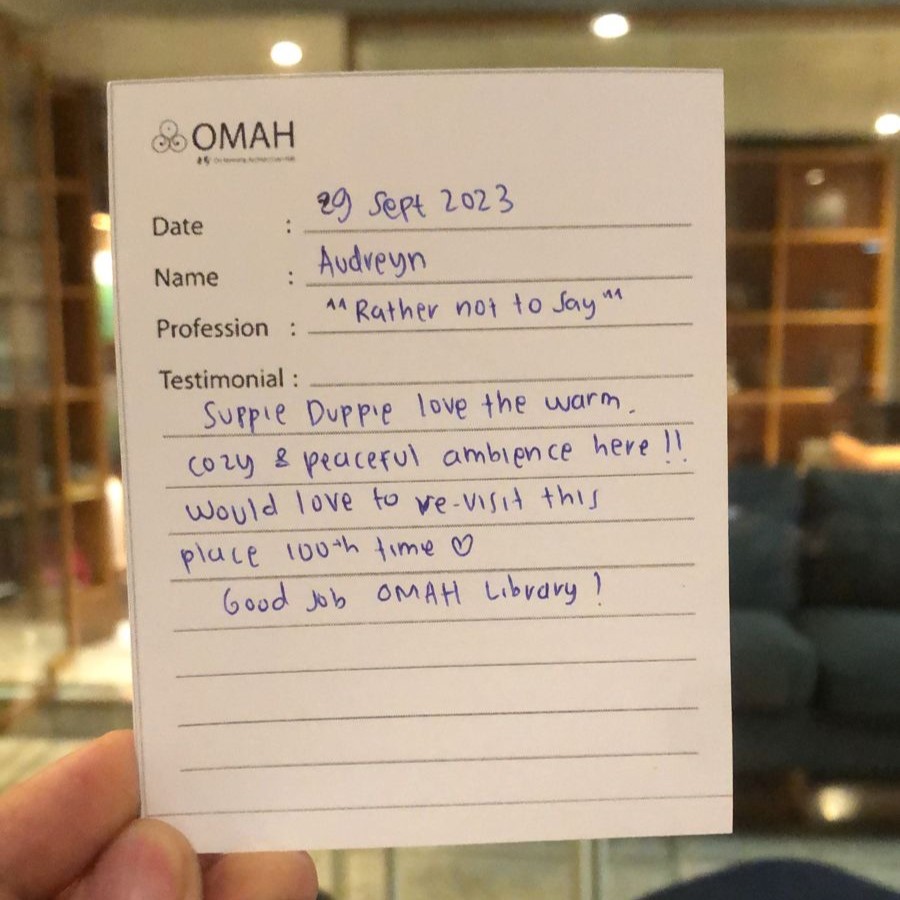 OMAH
Date : 29 Sept 2023
Name : Audreyn
Profession : "Rather not to say"
Testimonial :
Suppie Duppie love the warm,
cozy & peaceful ambience here !!
Would love to re-visit this
place 100th time ♡
Good Job OMAH Library !